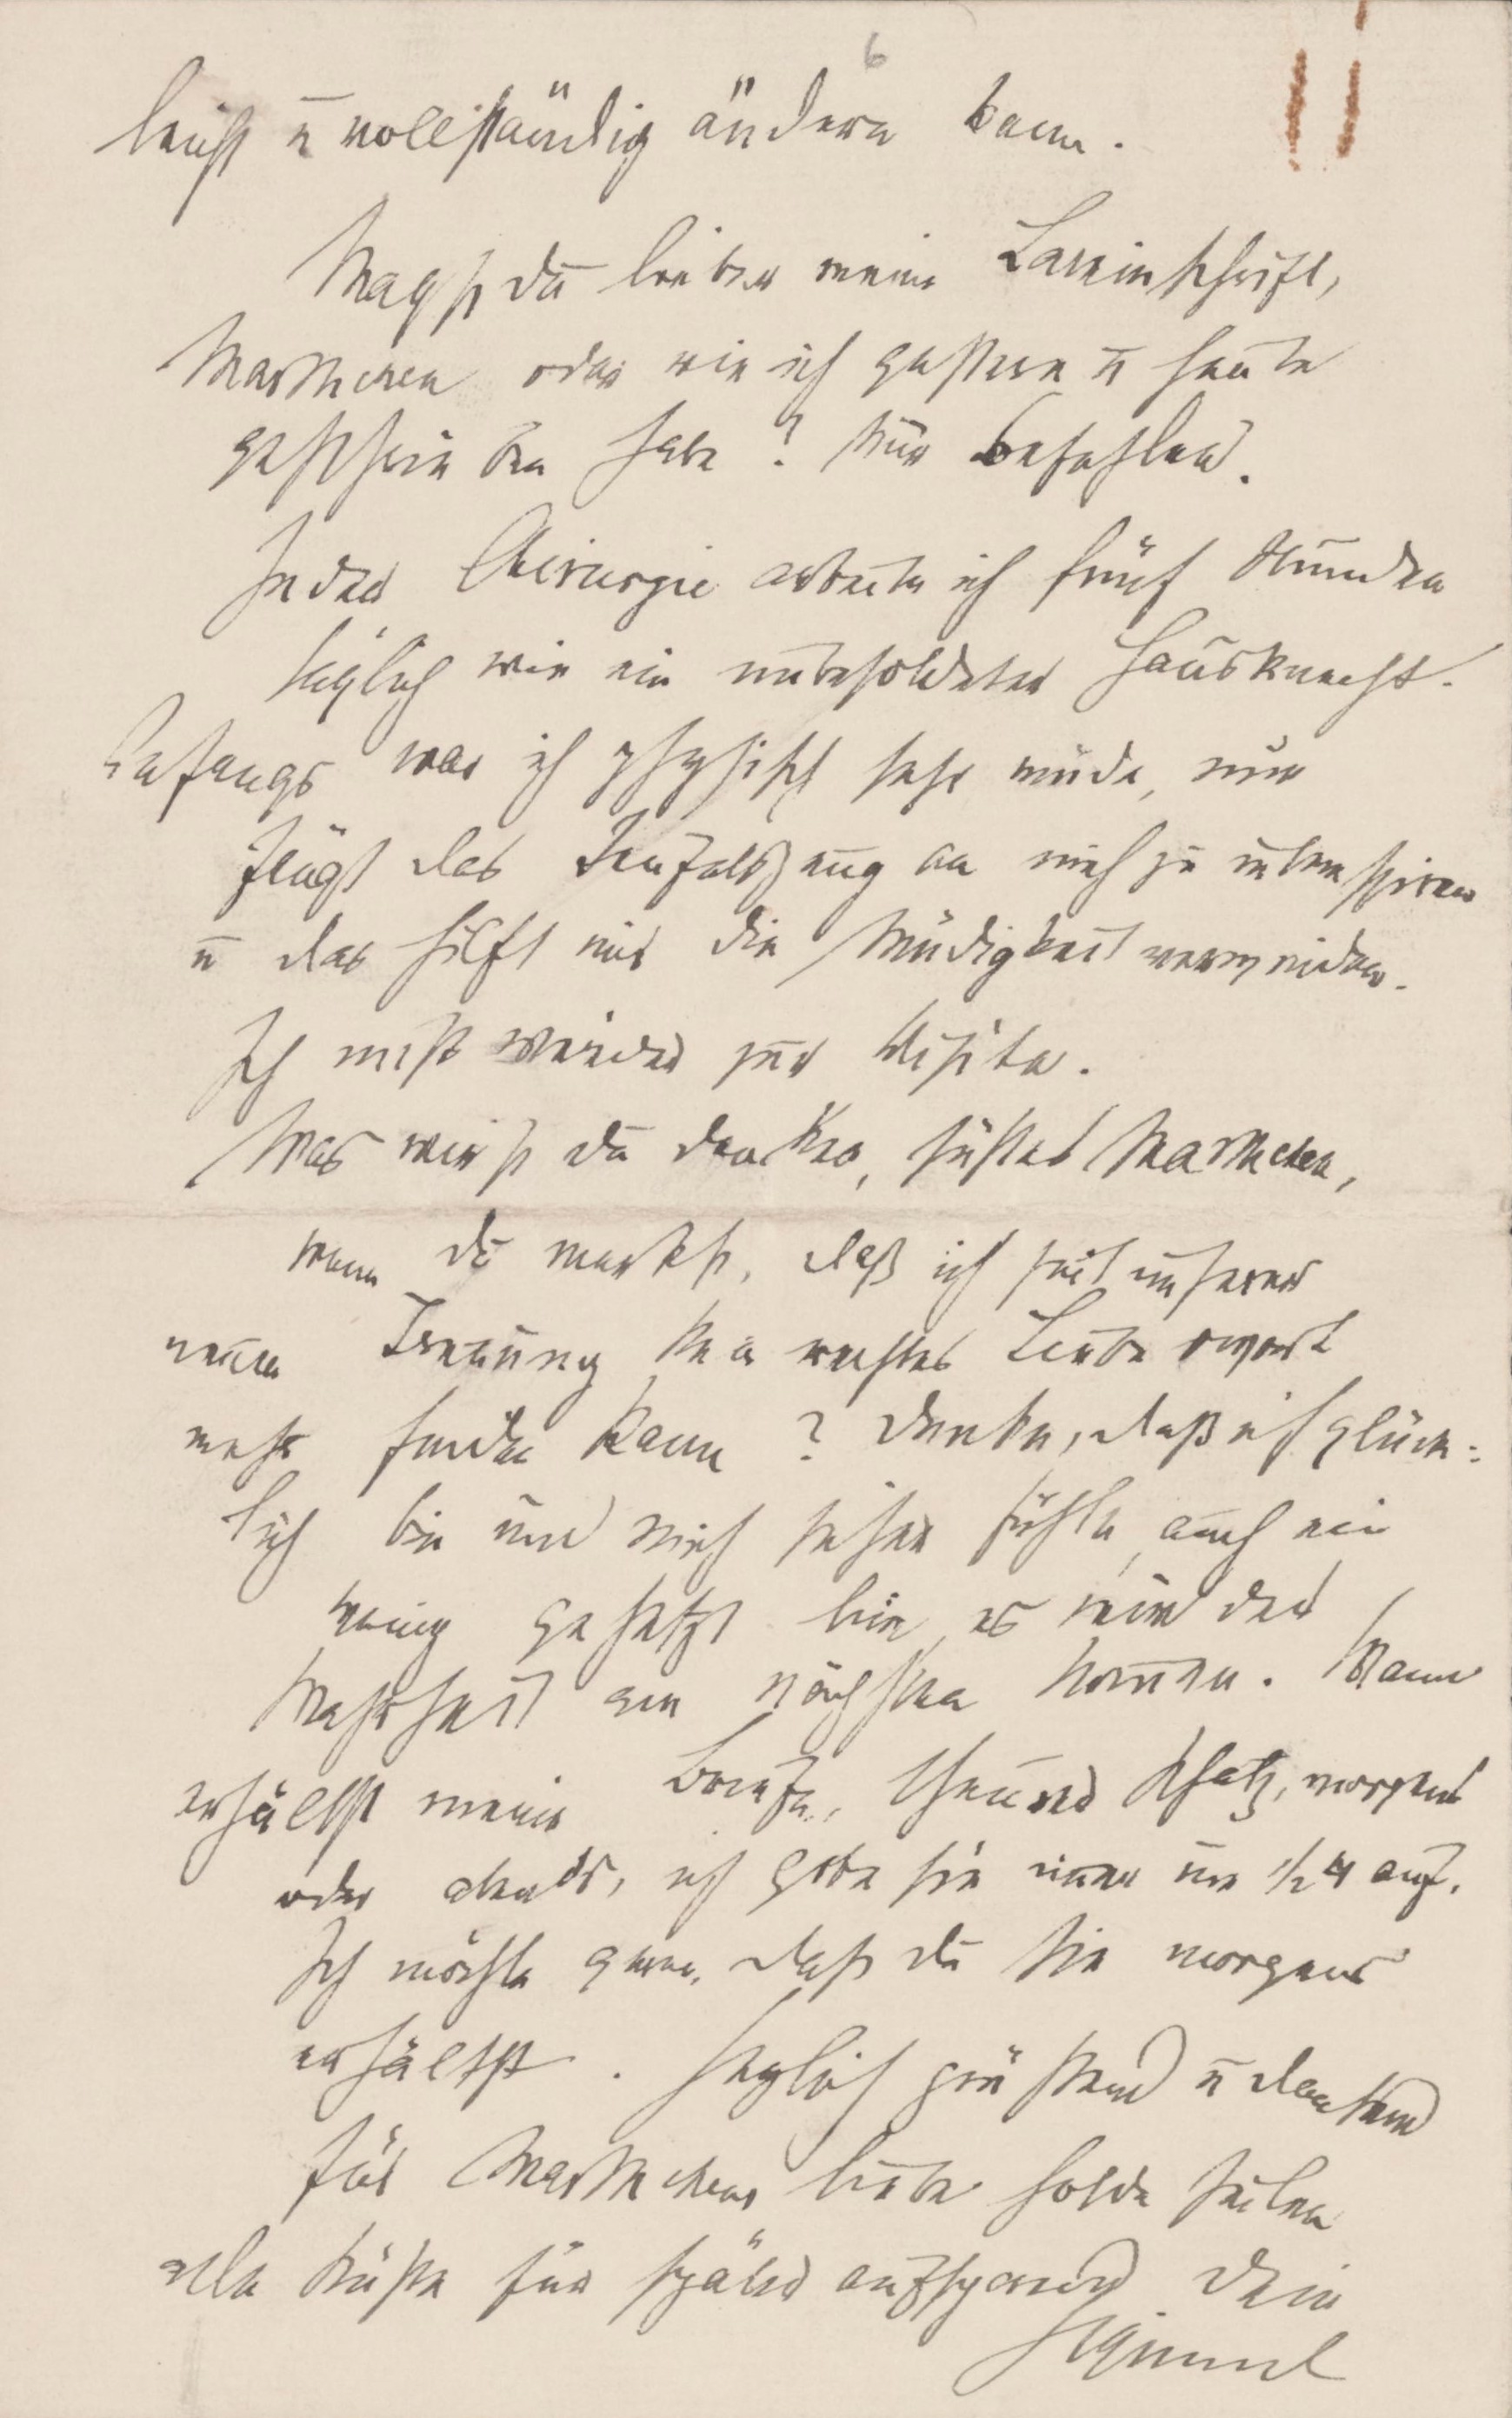 6
leicht u vollständig ändern kann.
Magst du lieber meine Lateinschrift,
Marthchen oder wie ich gestern u heute
geschrieben habe? Nur befehlen.
In der Chirurgie arbeite ich fünf Stunden
täglich wie ein unbesoldeter Hausknecht.
Anfangs war ich physisch sehr müde, nun
fängt das Teufelszeug an mich zu interessiren
u das hilft mir die Müdigkeit vermeiden.
Ich muß wieder zur Visite.
Was wirst du denken, süßes Marthchen,
wenn du merkst, daß ich seit unserer
neuen Trennung kein rechtes Liebeswort
mehr finden kann? Denke, daß ich glück-
lich bin und mich sicher fühle, auch ein
wenig gesetzt bin, es wird der
Wahrheit am nächsten kommen. Wann
erhältst meine Briefe, theurer Schatz, morgens
oder abends, ich gebe sie immer um 1/2 4 auf.
Ich möchte gerne, daß du sie morgens
erhältst. Herzlich grüßend u dankend
für Marthchens liebe holde Zeilen
alle Küße für später aufsparend Dein
Sigmund